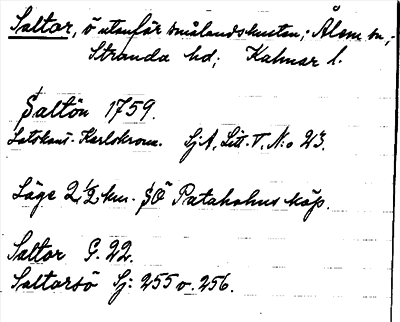 Saltor, ö utanför smålandskusten; Ålem sn,;
Stranda hd; Kalmar l.
Saltön 1759.
Lotskont. Karlskrona. SjA, Litt. V, N:o 23.
Läge 2 1/2 km. SÖ Pataholms köp.
Saltor G. 22.
Saltorsö Sj: 255 o. 256.